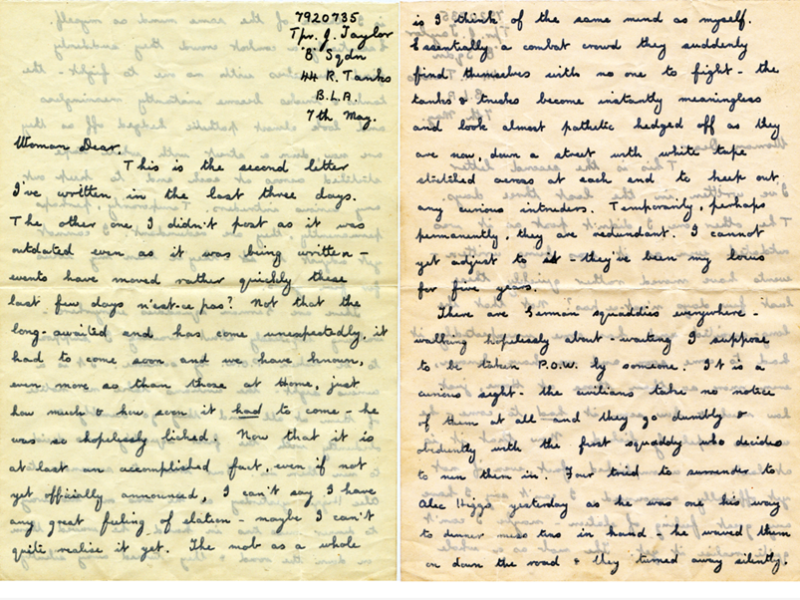 7920735
Tpr. J. Taylor
'B' Sqdn
44 R. Tanks
B.L.A.
7th May.
Woman Dear,
This is the second letter
I've written in the last three days.
The other one I didn't post as it was
outdated even as it was being written -
events have moved rather quickly these
last few days n'est-ce pas? Not that the
long-awaited end has come unexpectedly, it
had to come soon and we have known,
even more so than those at Home, just
how much & how soon it had to come - he
was so hopelessly licked. Now that it is
at last an accomplished fact, even if not
yet officially announced, I can't say I have
any great feeling of elation - maybe I can't
quite realise it yet. The mob as a whole
is I think of the same mind as myself.
Essentially a combat crowd they suddenly
find themselves with no one to fight - the
tanks & trucks become instantly meaningless
and look almost pathetic hedged off as they
are now, down a street with white tape
stretched across at each end to keep out
any curious intruders. Temporarily, perhaps
permanently, they are redundant. I cannot
yet adjust to it - they've been my locus
for five years.
There are German squaddies everywhere -
walking hopelessly about - waiting I suppose
to be taken P.O.W. by someone. It is a
curious sight - the civilians take no notice
of them at all - and they go dumbly &
obediently with the first squaddy who decides
to run them in. Four tried to surrender to
Alec Higgs yesterday as he was one his way
to dinner mess tins in hand - he waved them
on down the road & they turned away silently.